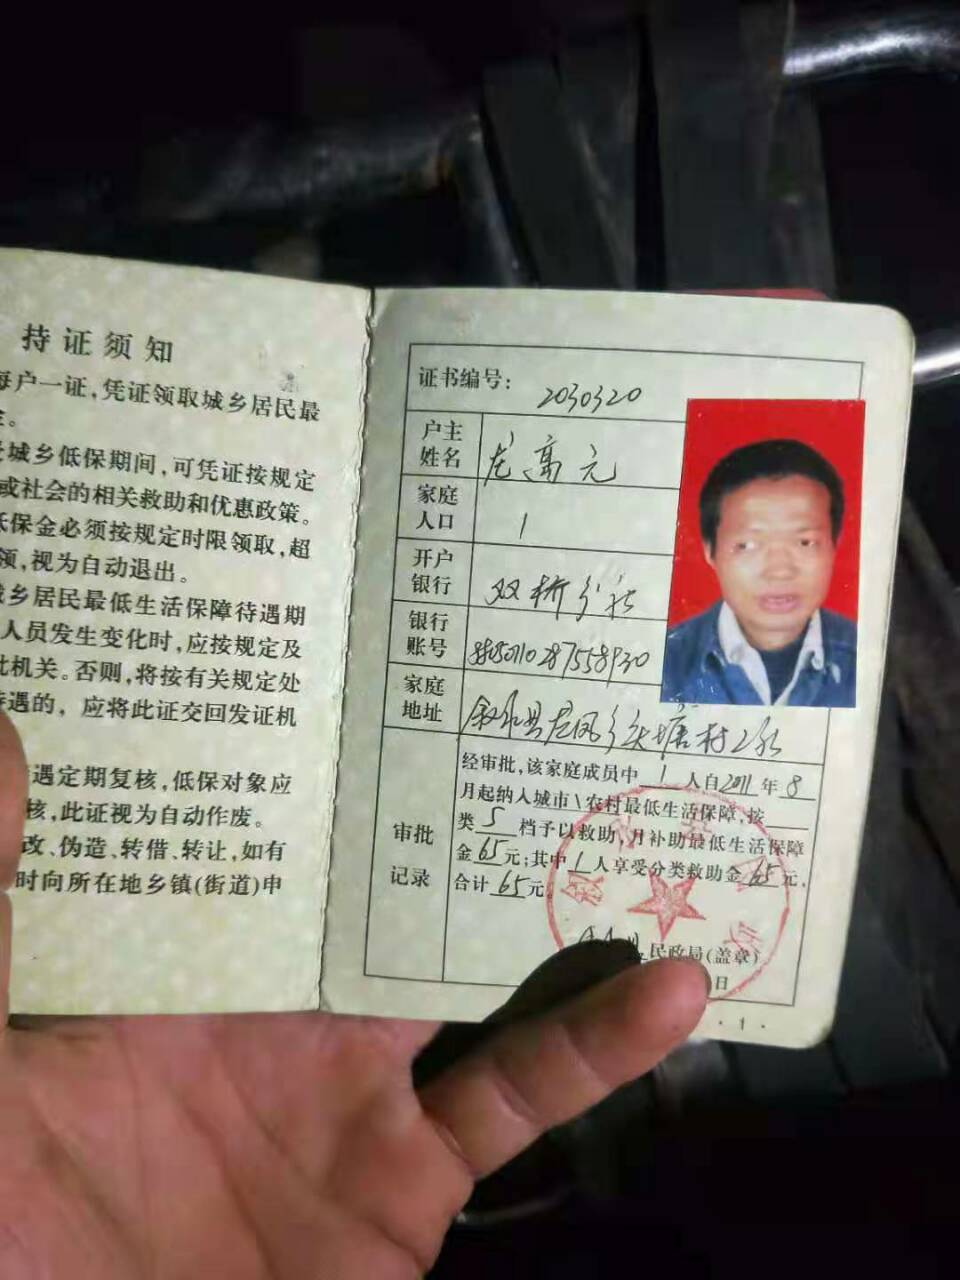 持证须知
每户一证,凭证领取城乡居民最
城乡低保期间,可凭证按规定
或社会的相关救助和优惠政策。
低保金必须按规定时限领取,超
领,视为自动退出。
乡居民最低生活保障待遇期
人员发生变化时,应按规定及
机关。否则,将按有关规定处
待遇的,应将此证交回发证机
遇定期复核,低保对象应
核,此证视为自动作废。
改、伪造、转借、转让,如有
时向所在地乡镇(街道)申
证书编号: 2030320
户主姓名 龙高元
家庭人口 1
开户银行 双桥分社
银行账号
家庭地址 叙永县龙凤乡头塘村2社
审批记录
经审批,该家庭成员中 1 人自2011年 8
月起纳入城市\农村最低生活保障,按
类 5 档予以救助,月补助最低生活保障
金 65 元;其中 1 人享受分类救助金 65 元,
合计 65 元。
民政局(盖章)
日
·1·